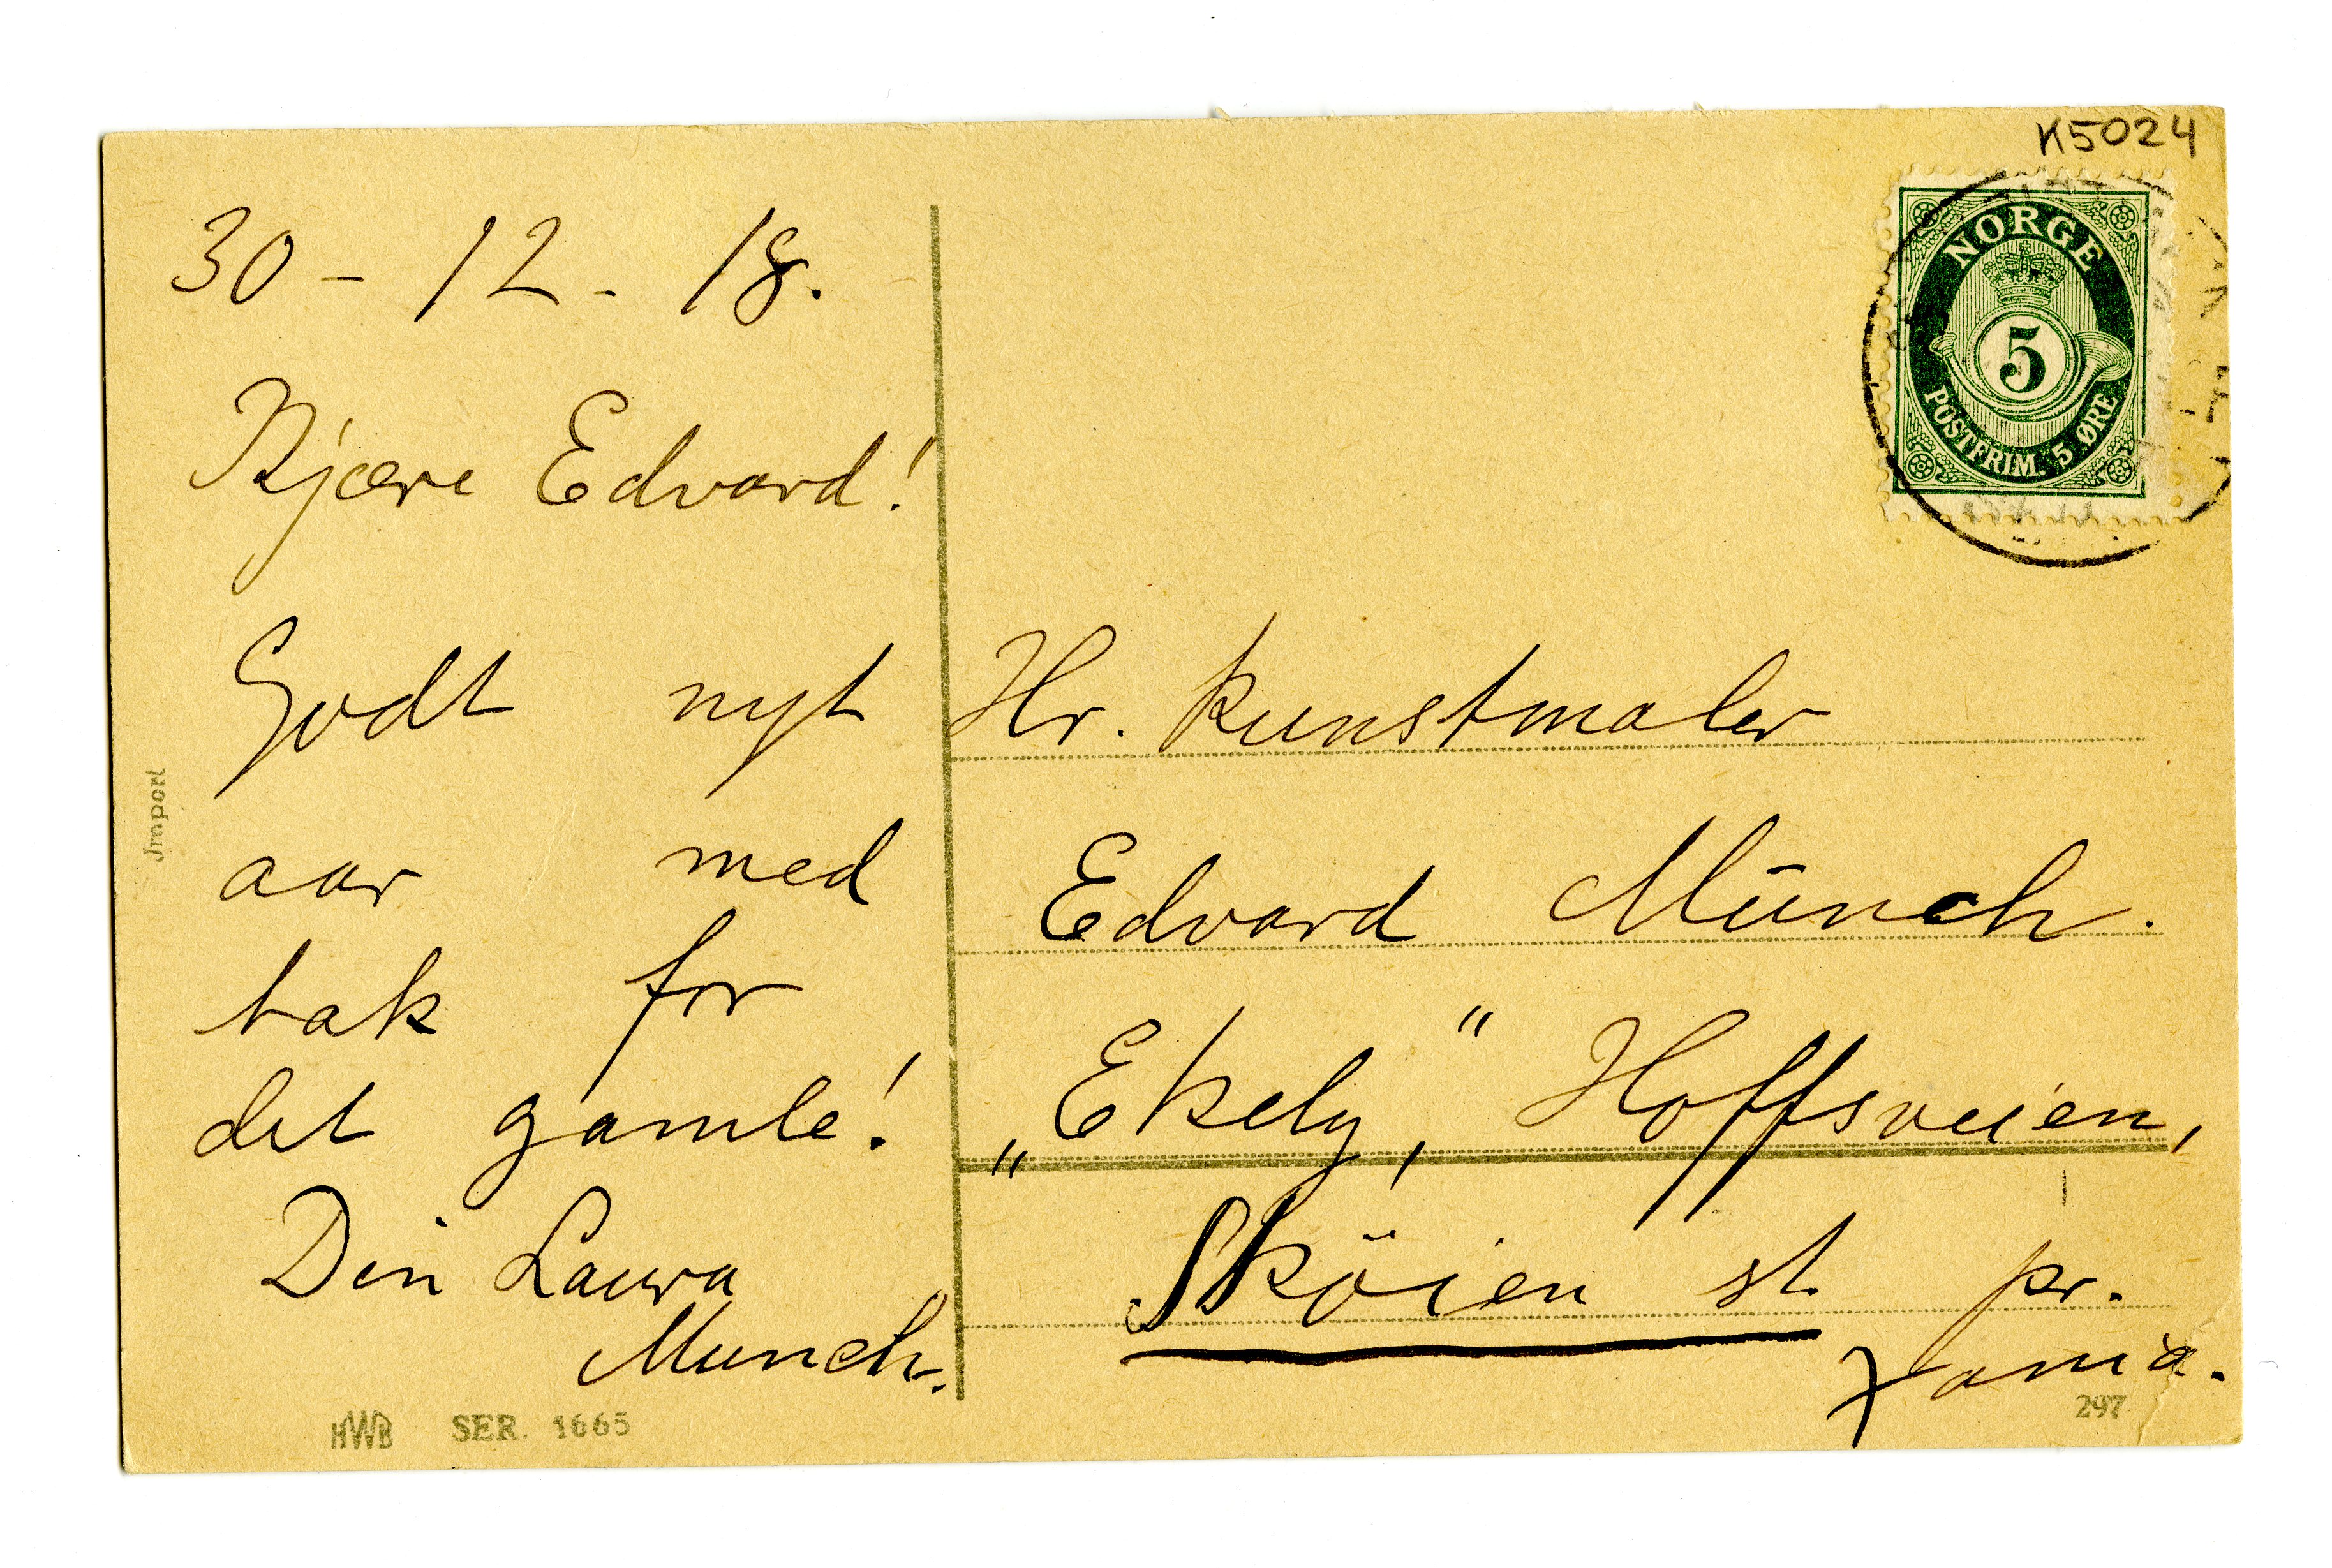 K5024
NORGE
5
POSTFRIM. 5 ØRE
30 - 12 - 18.
Kjære Edvard!
Godt nyt
aar med
tak for
det gamle!
Din Laura
Munch.
Hr. Kunstmaler
Edvard Münch.
„Ekely,“ Hoffsveien,
Sköien st. pr.
Xania.
Import
HWB SER. 1665
297